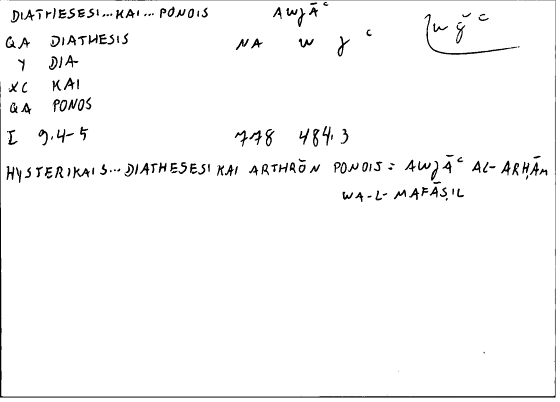 DIATHESESI...KAI...PONOIS AWJĀʿ
wǧʿ
QA DIATHESIS NA W J ʿ
Y DIA-
XC KAI
QA PONOS
I 9.4-5 778 484.3
HYSTERIKAIS...DIATHESESI KAI ARTHRŌN PONOIS = AWJĀʿ AL-ARḤĀM
WA-L-MAFĀṢIL